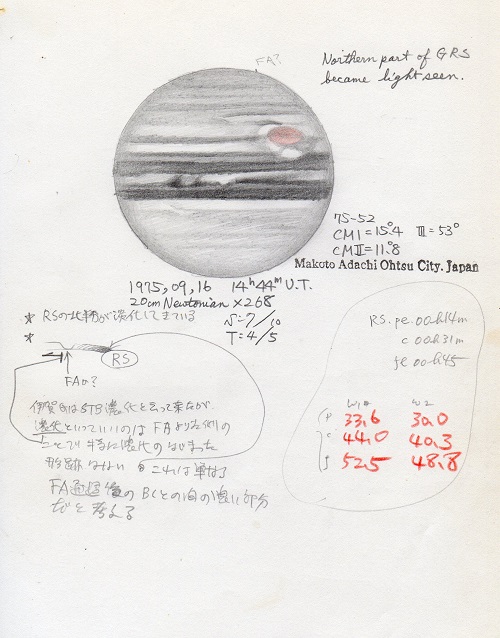 FA?
Northern part of GRS
became light seen.
75-52
CMI=15°.4 Ⅲ=53°
CMⅡ=11°.8
Makoto Adachi Ohtsu City. Japan
1975,09,16 14h44m U.T.
20cm Newtonian ×268
S=7/10
T=4/5
* RSの北部が淡化してきている
*
RS
FAか?
RS.pe 00h14m
c 00h31m
fe 00h45
W1 W2
P 33.6 30.0
c 44.0 40.3
f 52.5 48.8
伊賀氏はSTB濃化と云って来たが
濃化といっていいのはFAより右側の
ことで 特に濃化のはじまった
形跡はない これは単に
FA通過後のBCとの間の濃い部分
だと考える